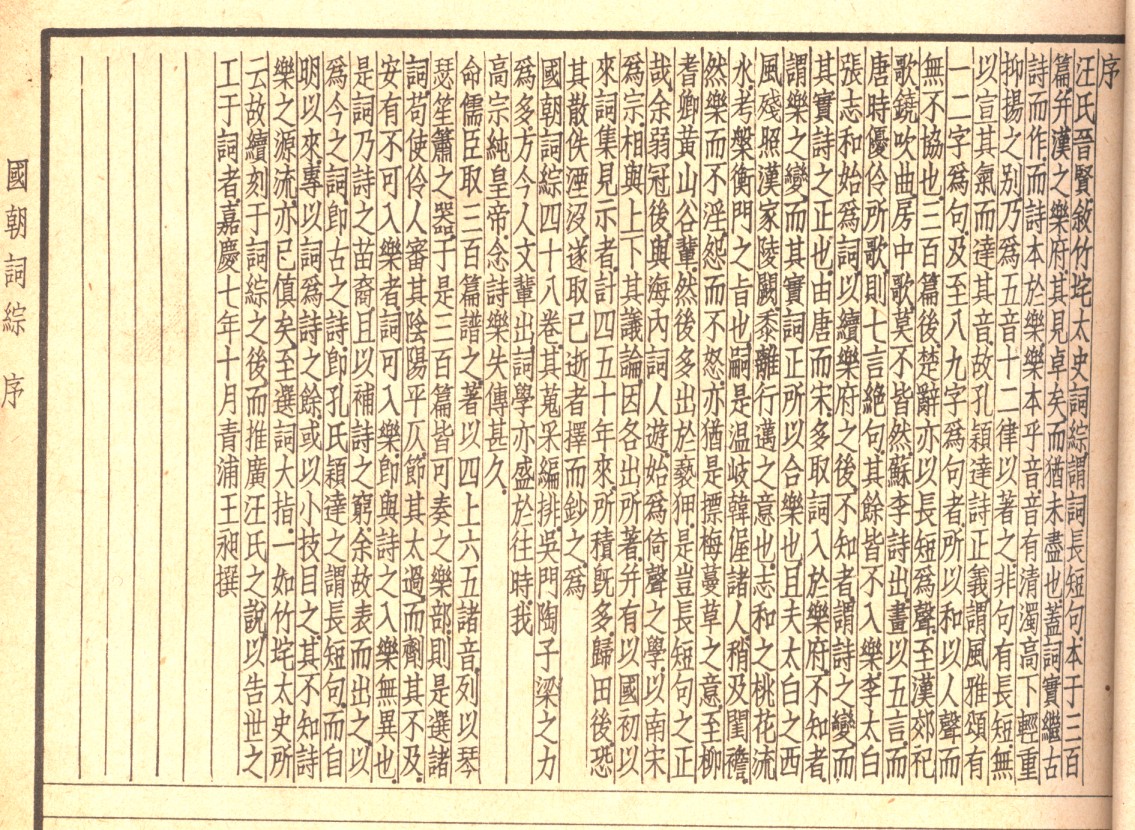 序
汪氏晉賢敘竹垞太史詞綜謂詞長短句本于三百
篇并漢之樂府其見卓矣而猶未盡也蓋詞實繼古
詩而作而詩本於樂樂本乎音音有清濁高下輕重
抑揚之別乃爲五音十二律以著之非句有長短無
以宣其氣而達其音故孔穎達詩正義謂風雅頌有
一二字爲句及至八九字爲句者所以和以人聲而
無不協也三百篇後楚辭亦以長短爲聲至漢郊祀
歌鐃吹曲房中歌莫不皆然蘇李詩出畫以五言而
唐時優伶所歌則七言絶句其餘皆不入樂李太白
張志和始爲詞以續樂府之後不知者謂詩之變而
其實詩之正也由唐而宋多取詞入於樂府不知者
謂樂之變而其實詞正所以合樂也且夫太白之西
風殘照漢家陵闕黍離行邁之意也志和之桃花流
水考槃衡門之旨也嗣是温岐韓偓諸人稍及閨襜
然樂而不淫怨而不怒亦猶是摽梅蔓草之意至柳
耆卿黃山谷輩然後多出於褻狎是豈長短句之正
哉余弱冠後與海內詞人遊始爲倚聲之學以南宋
爲宗相與上下其議論因各出所著并有以國初以
來詞集見示者計四五十年來所積旣多歸田後恐
其散佚湮沒遂取已逝者擇而鈔之爲
國朝詞綜四十八卷其蒐采編排吳門陶子梁之力
爲多方今人文輩出詞學亦盛於往時我
高宗純皇帝念詩樂失傳甚久
命儒臣取三百篇譜之著以四上六五諸音列以琴
瑟笙簫之器于是三百篇皆可奏之樂部則是選諸
詞苟使伶人審其陰陽平仄節其太過而劑其不及
安有不可入樂者詞可入樂卽與詩之入樂無異也
是詞乃詩之苗裔且以補詩之窮余故表而出之以
爲今之詞卽古之詩卽孔氏穎達之謂長短句而自
明以來專以詞爲詩之餘或以小技目之其不知詩
樂之源流亦已傎矣至選詞大指一如竹垞太史所
云故續刻于詞綜之後而推廣汪氏之說以告世之
工于詞者嘉慶七年十月青浦王昶撰
國朝詞綜 序